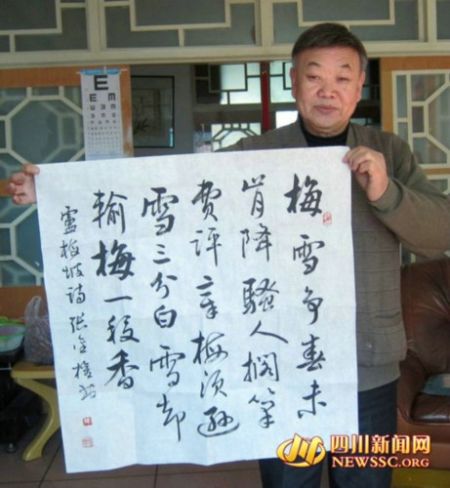 E
梅雪争春未
肯降騷人搁筆
费评章梅须逊
雪三分白雪却
输梅一段香
盧梅坡诗 张金
四川新闻网
NEWSSC.ORG